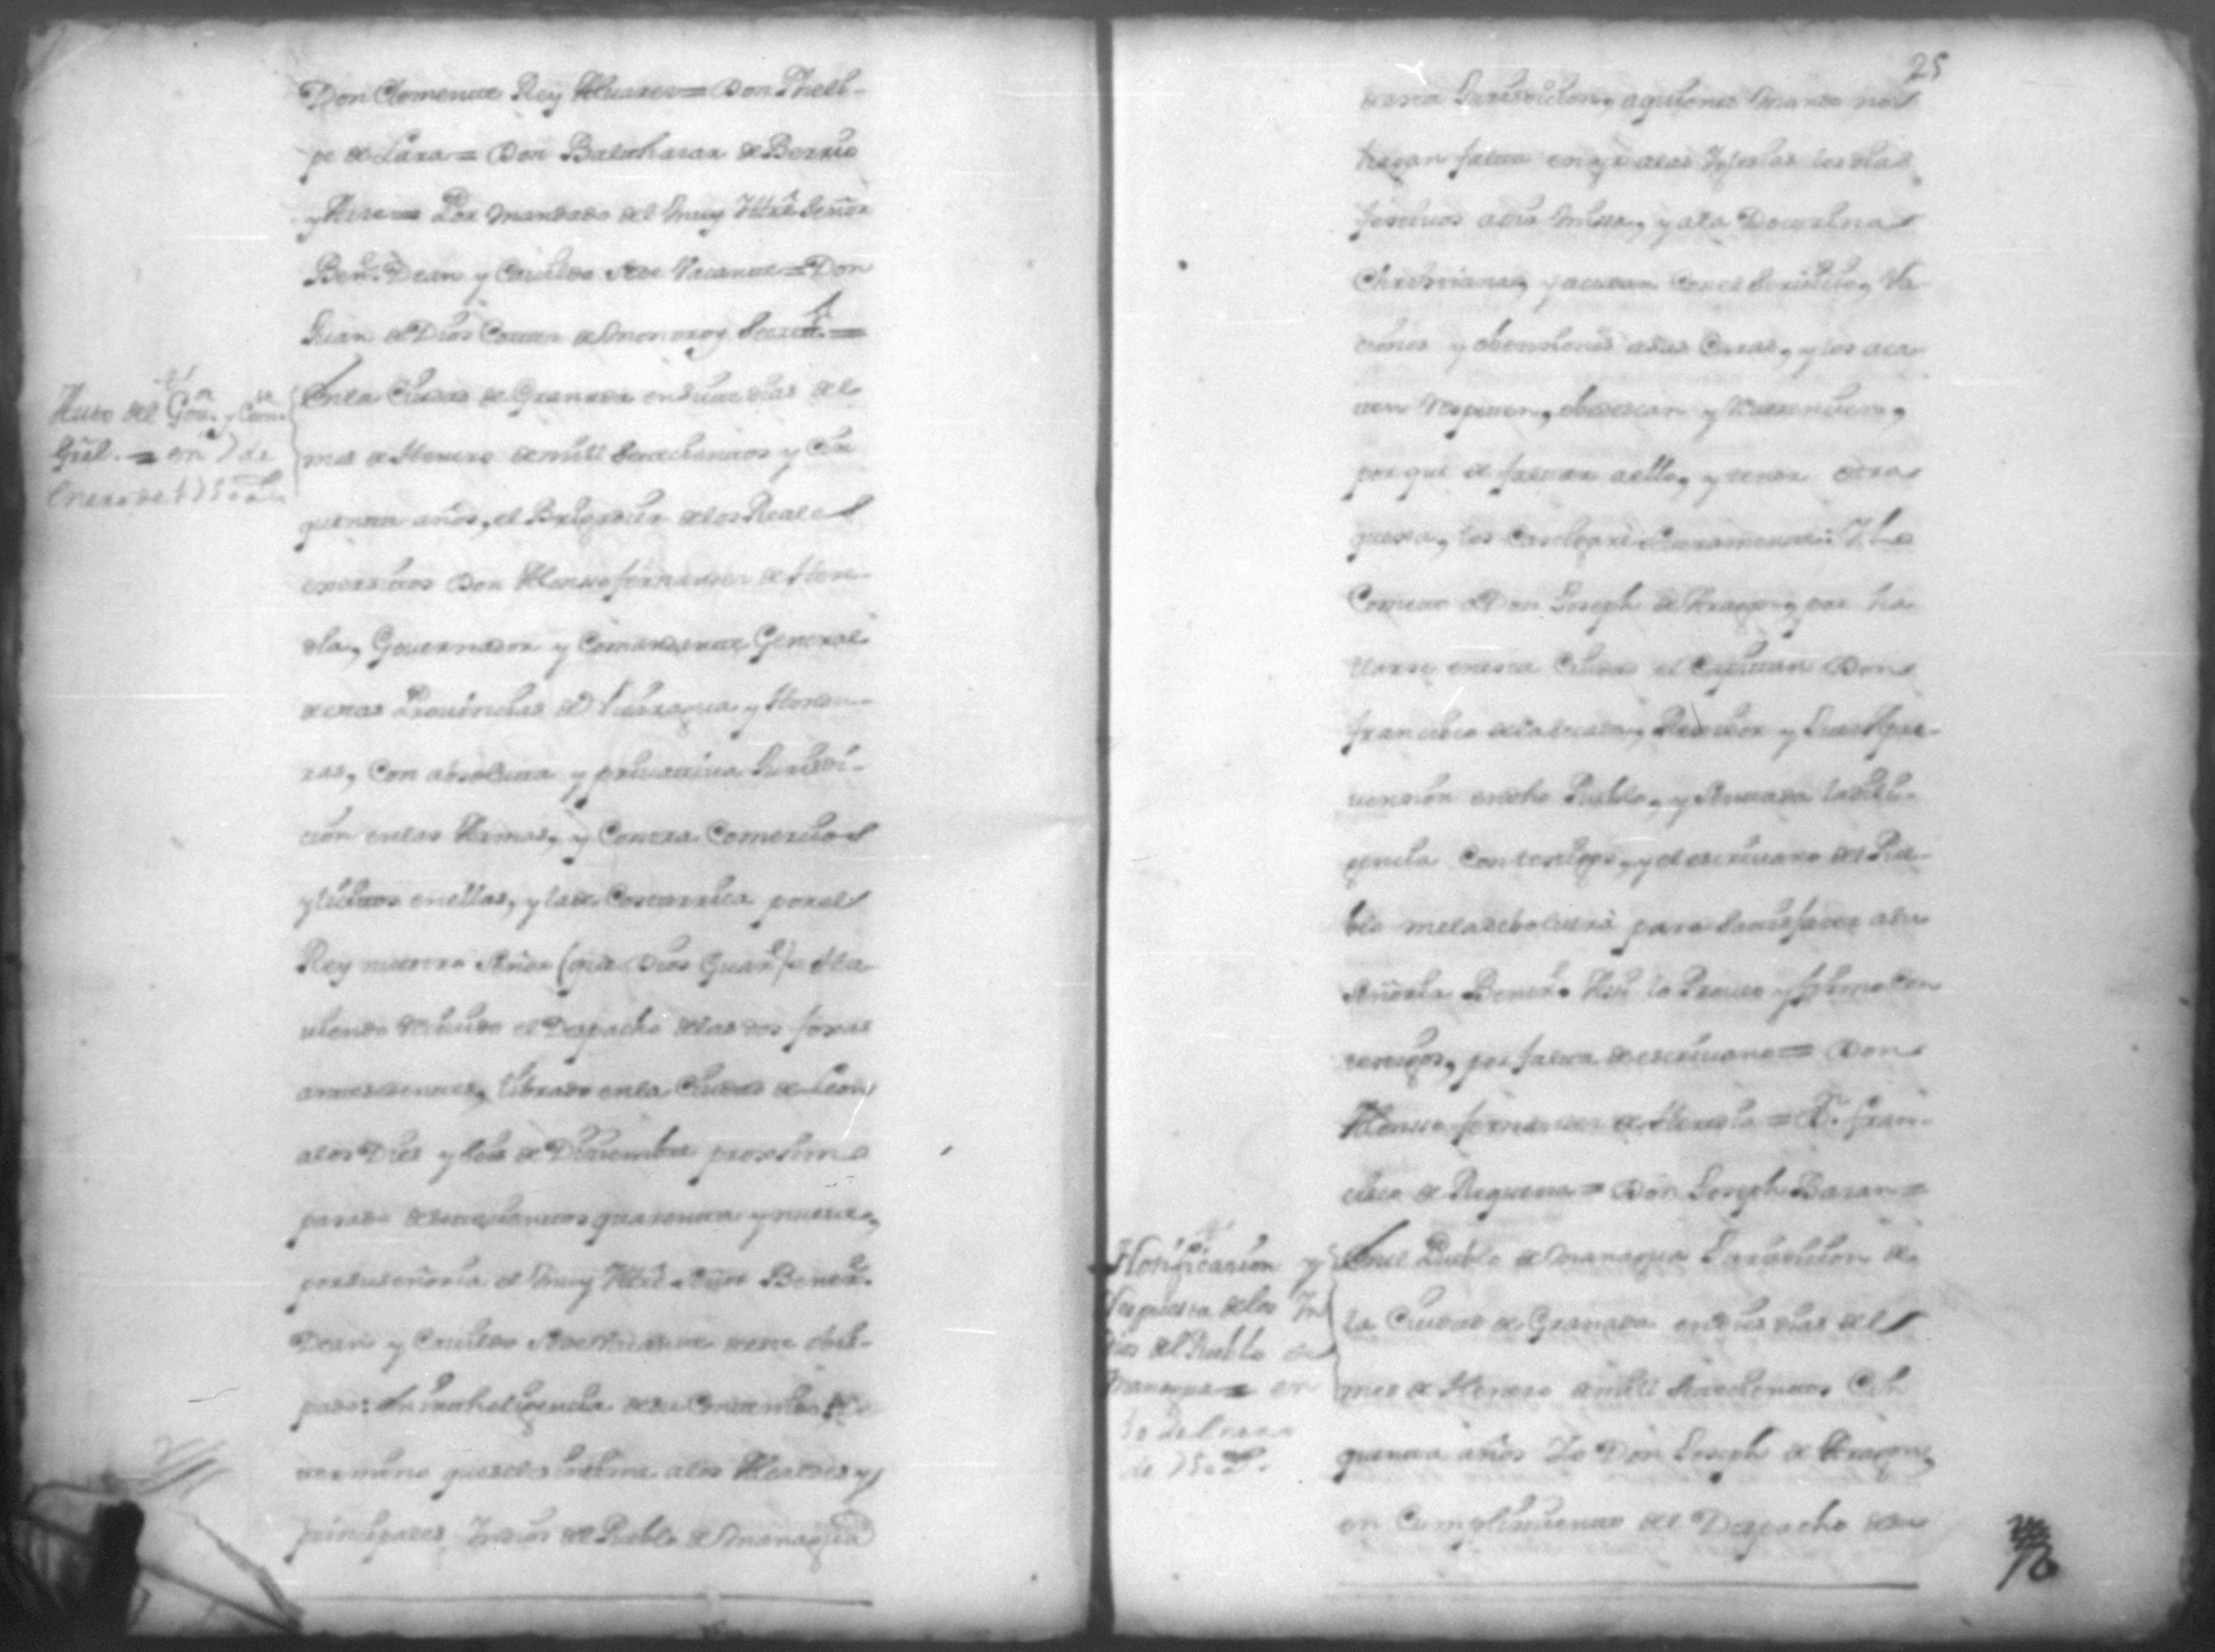 Don Clemente Rey Alvarez = Don Pheli-
pe de Lara = Don Balthasar de Berrio
y = Por mandado del muy Iltrè Señor
Benè. Dean y Cavildo Sede Vacante = Don
Juan de Dios de Monrroy Secretº. =
Auto del Govor. y Comte.
Grâl. = en 7 de
Enero de 1750 as.
En la Ciudad de Granada en siete dias del
mes de Henero de mill Setecientos y Cin
quenta años, el Brigadier delos Reales
exercitos Don Alonso fernandez de Here-
dia, Governador y Comandante General
de estas Provincias de Nicaragua y Hondu-
ras, Con absoluta y privativa Jurisdi-
cion enlas Armas, y Contra Comercios
ylicitos enellas, y lade Costarrica por el
Rey nuestro Señor (que Dios Guarè) = Ha
viendo recivido el Despacho delas dos foxas
antesedentes, librado enla Ciudad de Leon
alos Dies y seis de Diciembre proximo
pasado de setecientos quarenta y nueve,
por su señoria el muy Iltrè Señor Benerè.
Dean y Cavildo Sede Vacante deste obis-
pado: En yntheligencia desu Contenido, De
termino que se les intime alos Alcaldes y
principales Indios del Pueblo de Managua
25
desta Jurisdicion, aquienes mando no
hagan falta en yr alas Yglesias los dias
festivos aoir Missa, y ala Doctrina
Christiana, y acudan con el Servicio, Ra-
ciones y obenciones asus Curas, y los aca
ten Respeten, obedescan y Reverencien,
por que de faltar aello, y tener otra
quexa, los Castigarè Severamente: Y lo
Cometo a Don Joseph de Aragon, por ha
llarse enesta Ciudad el Capitan Don
francisco dela , Rexidor y Juez Apre-
vension en dho Pueblo, y Actuada la dili-
gencia Con testigos, y el escrivano del Pue-
blo me la debolverà para Satisfacer asu
Señoria Benerè. Asi lo Proveo y firmo Con
testigos, por falta de escrivano = Don
Alonso fernandez de Heredia = Dn. fran-
cisco de Requena = Don Joseph Bazan =
Notificacion y
Respuesta delos In
dios del Pueblo de
Managua = en
10 de Enero
de 750 as.
En el Pueblo de Managua Jurisdicion de
la Ciudad de Granada en dies dias del
mes de Henero de mill Setecientos Cin
quenta años Yo Don Joseph de Aragon,
en Cumplimiento del Despacho desu